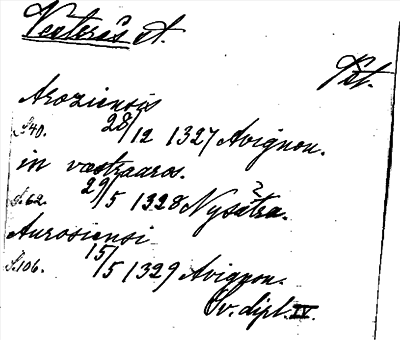 Västerås st.
Vst.
Aroziensis
S. 40. 28/12 1327 Avignon.
in vastraaros.
S. 62. 29/5 1328 Nysätra. ?
Aurosiensi
S. 106. 15/5 1329 Avignon.
Sv. dipl. IV.